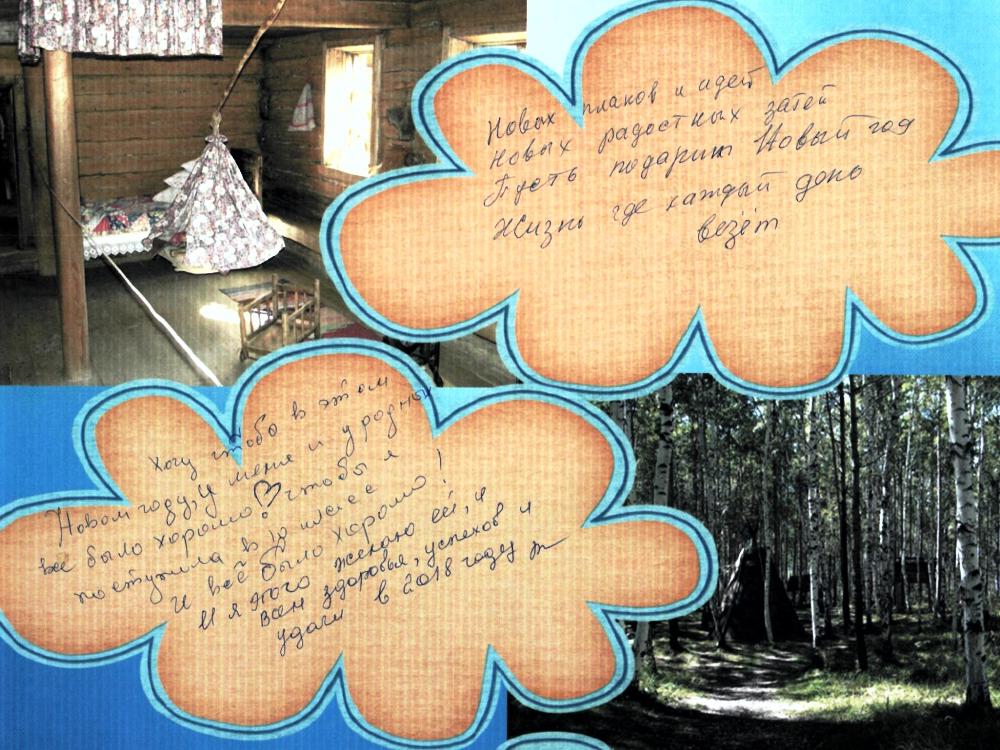 Новых планов и идей
Новых радостных затей
Пусть подарит Новый год
Жизнь где каждый день
везёт
Хочу чтобы в этом
Новом году, у меня и у родных
всё было хорошо! чтобы я
поступила в 10 класс
и всё было хорошо!
И я этого желаю ей, и
вам здоровья, успехов и
удачи в 2018 году